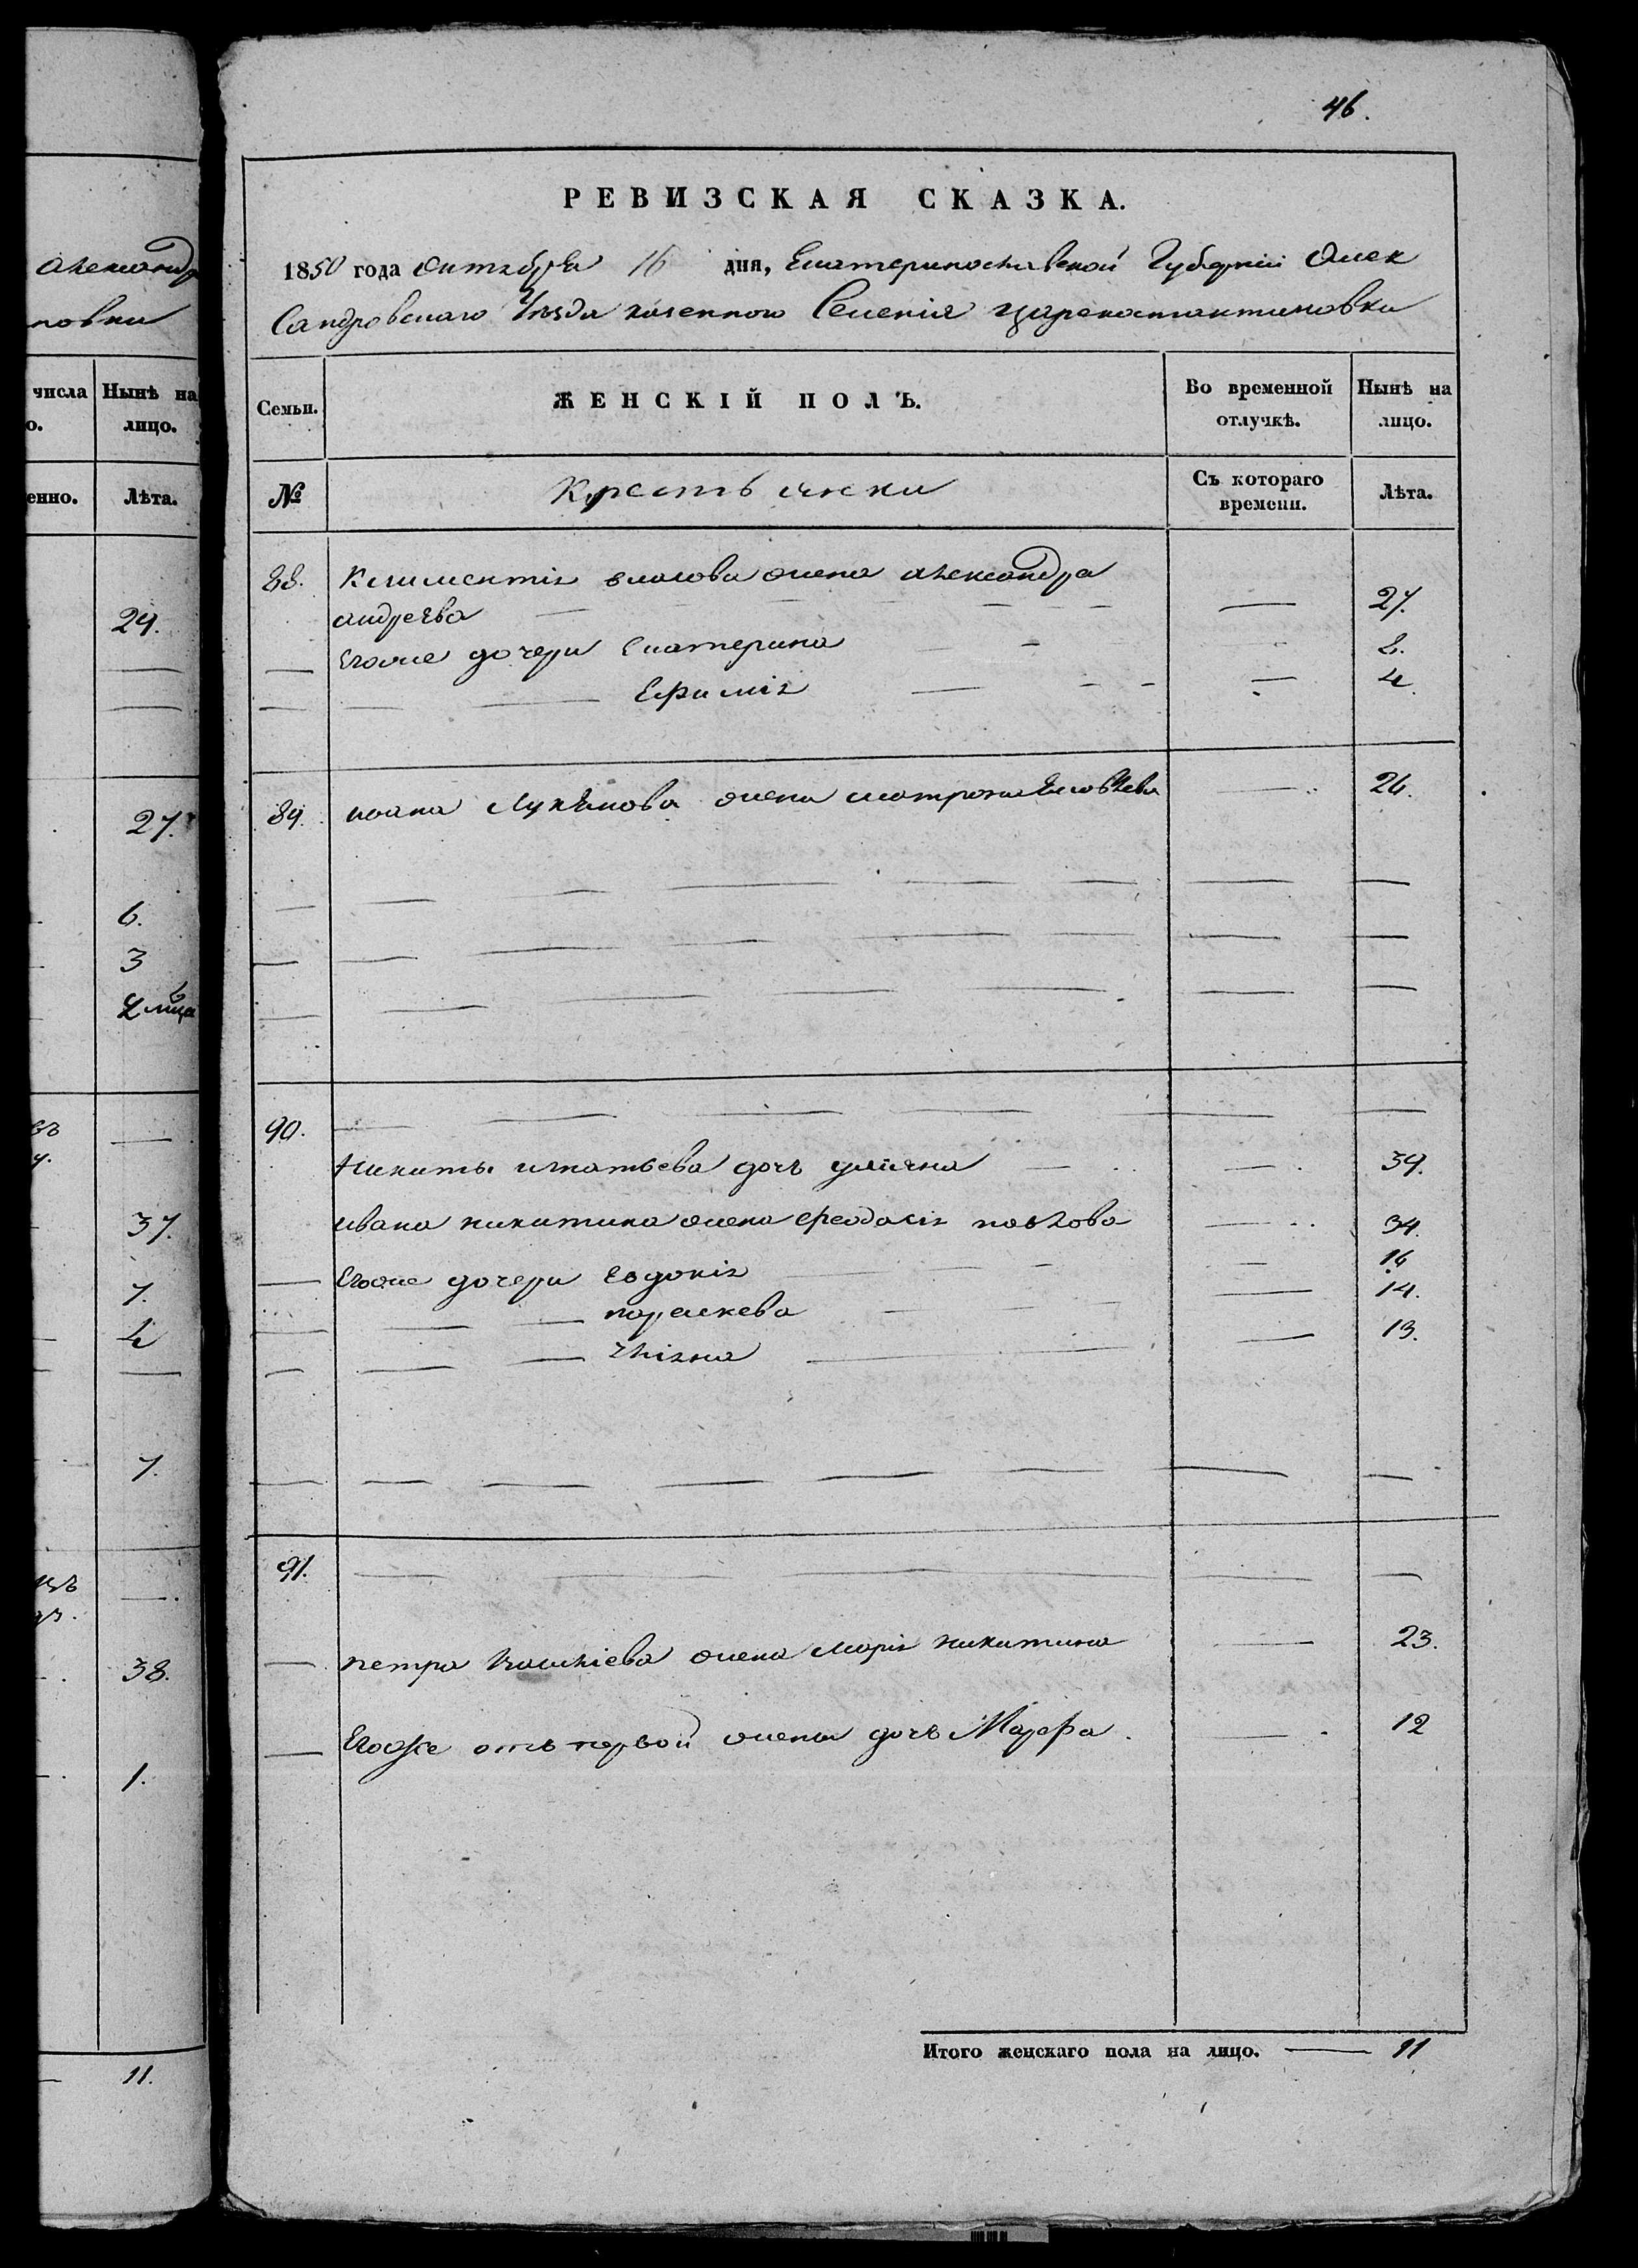 александр
новки
числа Нынѣ на
о. лицо.
енно. Лѣта.
29.
27.
6.
3
37.
7.
4
7.
38.
1.
11.
46.
РЕВИЗСКАЯ СКАЗКА.
1850 года октября 16 дня, Екатеринославской Губерніи Алек
сандровскаго Уѣзда казенного Селенія цареконстантиновки
Семьи. ЖЕНСКІЙ ПОЛЪ. Во временной отлучкѣ. Нынѣ на лицо.
№ Крестьянки Съ котораго времени. Лѣта.
88. Климентія власова жена александра
андреева 27.
Егоже дочери Екатерина 8.
Ефимія 4.
89. иоана Лукянова жена матрона 26.
90.
Никиты игнатьева дочь улияна 39.
ивана никитина жена феодосія павлова 34.
Егоже дочери Евдокія 16
параскева 14.
13.
91.
петра жена марія никитина 23.
Егоже отъ первой жены дочь Марфа. 12
Итого женскаго пола на лицо. 11